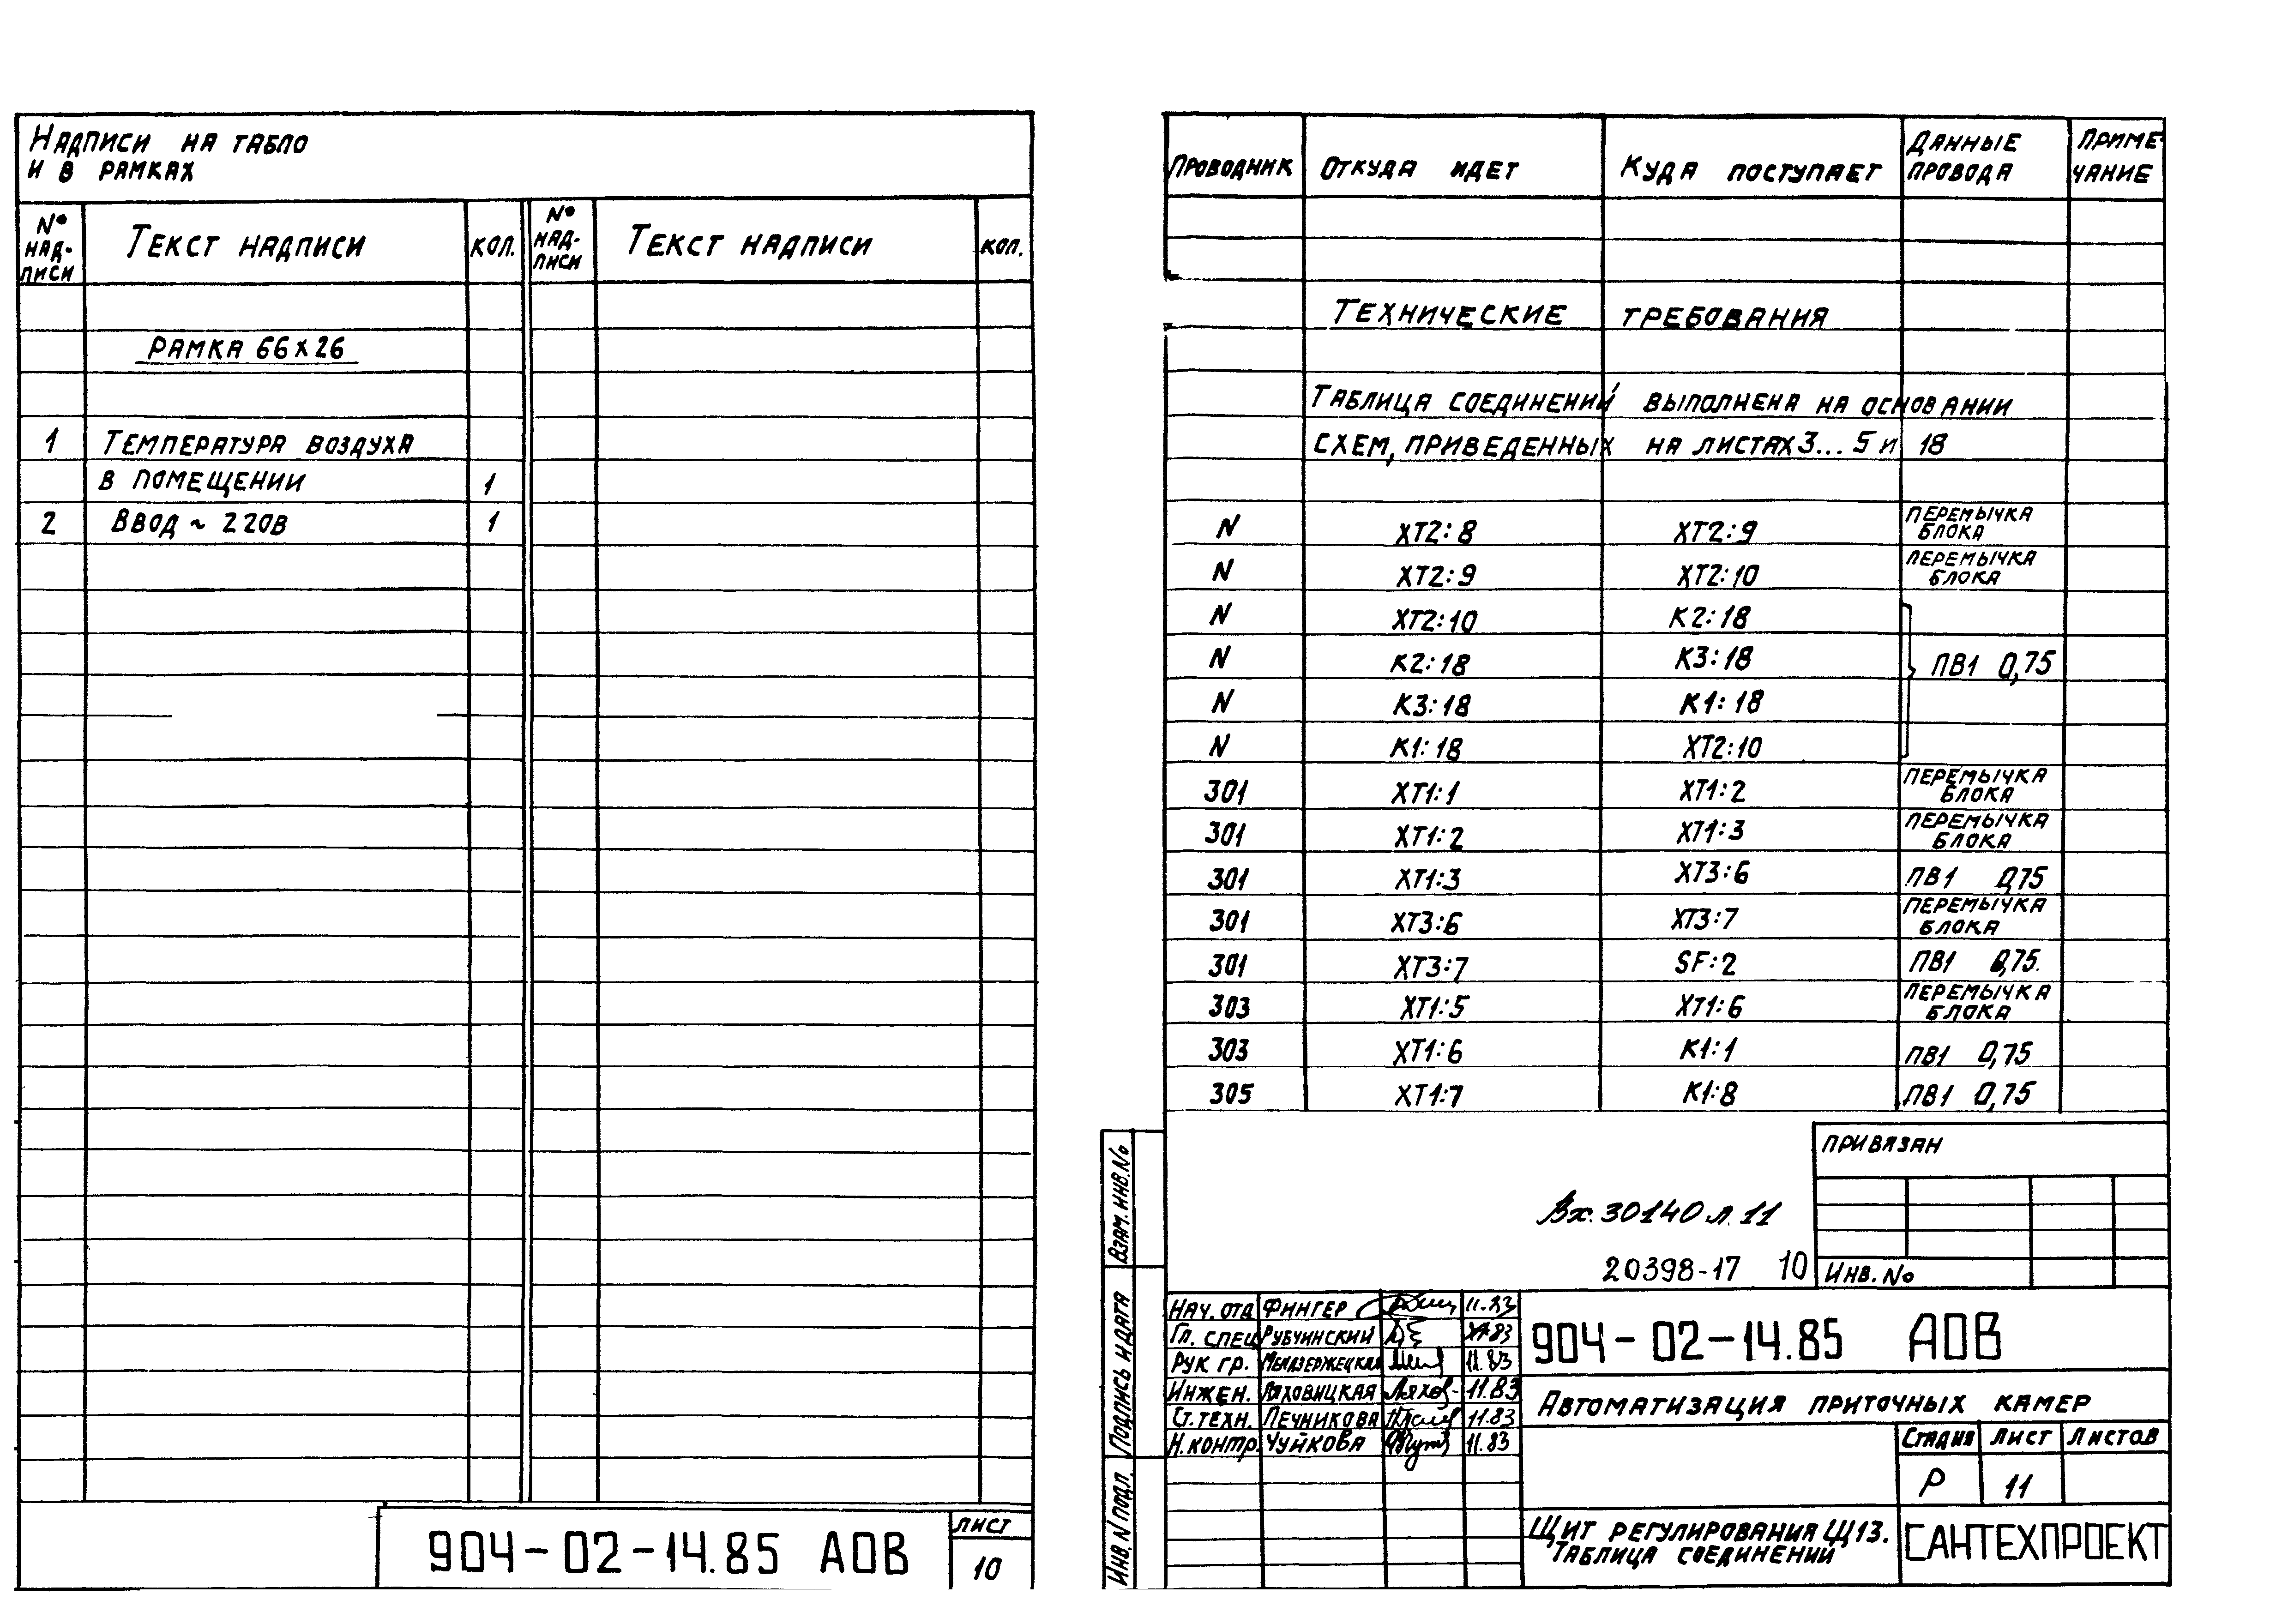 Надписи на табло
и в рамках
№ надписи Текст надписи кол. № надписи Текст надписи кол.
Рамка 66х26
1 Температура воздуха
в помещении 1
2 Ввод ~ 220В 1
904-02-14.85 АОВ
лист
10
Проводник Откуда идет Куда поступает Данные провода Примечание
Технические требования
Таблица соединений выполнена на основании
схем, приведенных на листах 3... 5 и 18
N ХТ2:8 ХТ2:9 перемычка блока
N ХТ2:9 ХТ2:10 перемычка блока
N ХТ2:10 К2:18
N К2:18 К3:18 ПВ1 0,75
N К3:18 К1:18
N К1:18 ХТ2:10
301 ХТ1:1 ХТ1:2 перемычка блока
301 ХТ1:2 ХТ1:3 перемычка блока
301 ХТ1:3 ХТ3:6 ПВ1 0,75
301 ХТ3:6 ХТ3:7 перемычка блока
301 ХТ3:7 SF:2 ПВ1 0,75.
303 ХТ1:5 ХТ1:6 перемычка блока
303 ХТ1:6 К1:1 ПВ1 0,75
305 ХТ1:7 К1:8 ПВ1 0,75
Привязан
Вх. 30140 л. 11
20398-17 10
Инв. №
Взам. инв. №
Подпись и дата
Инв. N подл.
Нач. отд Фингер 11.83
Гл. спец Рубчинский 83
Рук гр. 11.83
Инжен. Ляховицкая Ляхов- 11.83
Ст. техн. Печникова 11.83
Н. контр. Чуйкова 11.83
904-02-14.85 АОВ
Автоматизация приточных камер
Стадия Лист Листов
Р 11
Щит регулирования Щ13.
Таблица соединений
САНТЕХПРОЕКТ